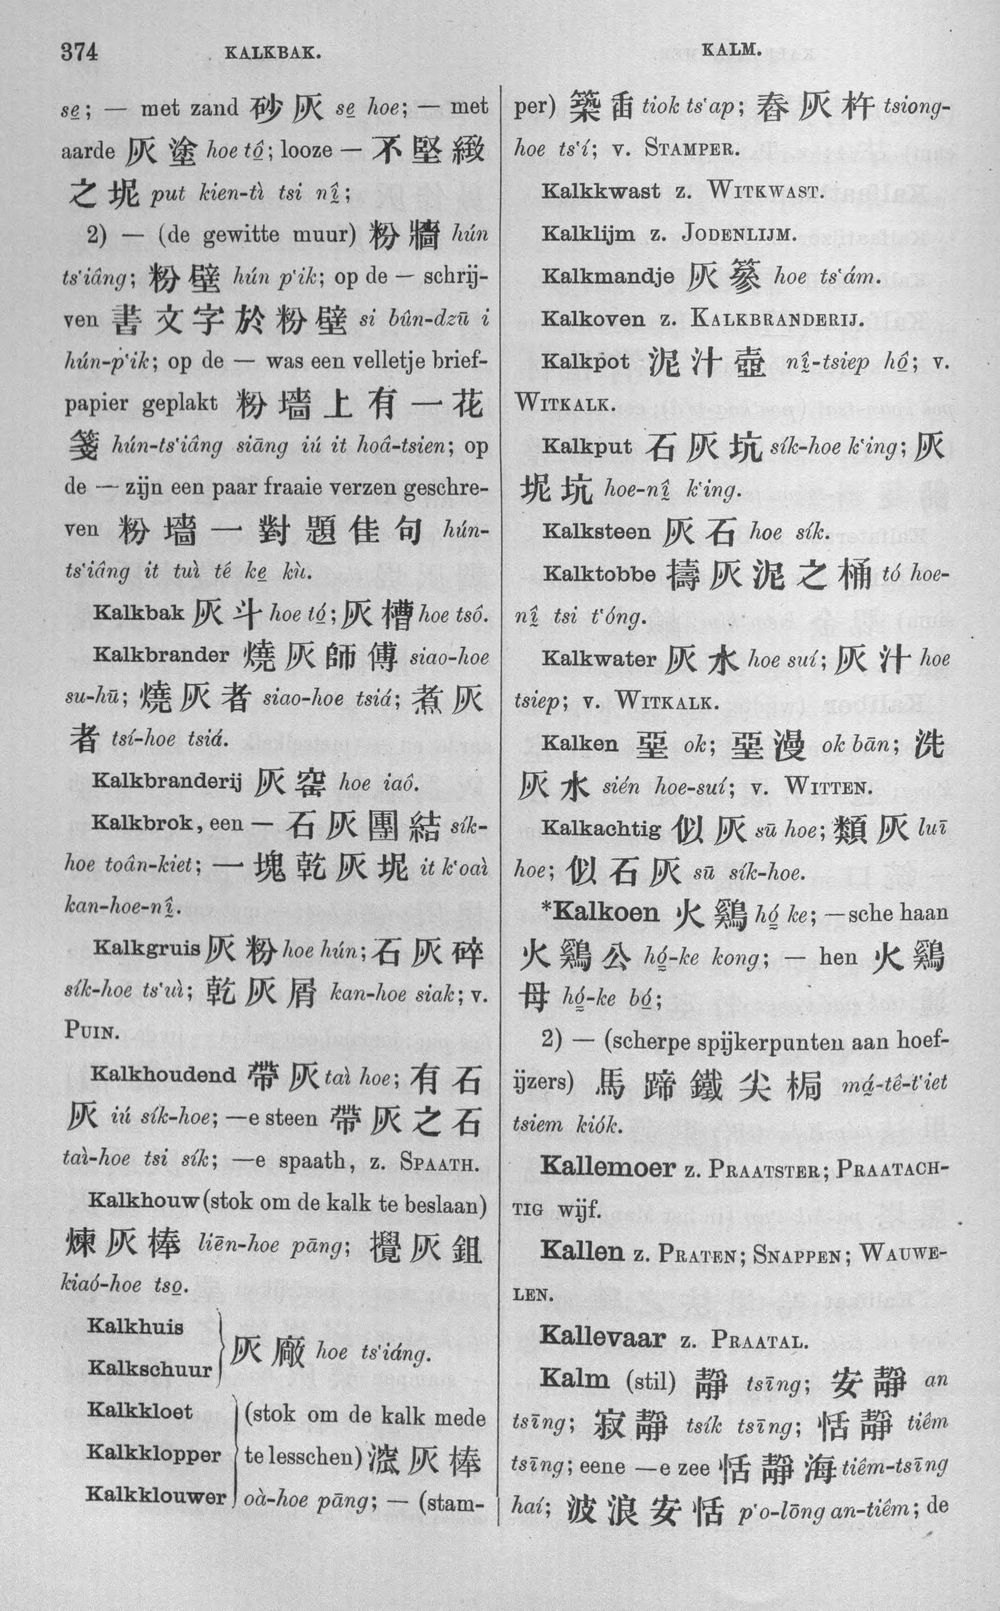 374 KALKBAK. KALM.
se̲; — met zand 砂灰 se̲ hoe; — met
aarde 灰塗 hoe tô̲; looze — 不堅緻
之坭 put kien-tì tsi nî̲;
2) — (de gewitte muur) 粉牆 hún
ts'iâng; 粉壁 hún p'ik; op de — schrij-
ven 書文字於粉壁 si bûn-dzū i
hún-p'ik; op de — was een velletje brief-
papier geplakt 粉墻上有一花
箋 hún-ts'iâng siāng iú it hoâ-tsien; op
de — zijn een paar fraaie verzen geschre-
ven 粉墻一對題佳句 hún-
ts'iâng it tuì té ke̲ kù.
Kalkbak 灰斗 hoe tó̲; 灰槽 hoe tsô.
Kalkbrander 燒灰師傅 siao-hoe
su-hū; 燒灰者 siao-hoe tsiá; 煮灰
者 tsí-hoe tsiá.
Kalkbranderij 灰窰 hoe iaô.
Kalkbrok, een — 石灰團結 sík-
hoe toân-kiet; 一塊乾灰坭 it k'oaì
kan-hoe-nî̲.
Kalkgruis 灰粉 hoe hún; 石灰碎
sík-hoe ts'uì; 乾灰屑 kan-hoe siak; v.
PUIN.
Kalkhoudend 帶灰 taì hoe; 有石
灰 iú sík-hoe; —e steen 帶灰之石
taì-hoe tsi sík; —e spaath, z. SPAATH.
Kalkhouw (stok om de kalk te beslaan)
煉灰棒 liēn-hoe pāng; 攪灰鉏
kiaó-hoe tso̲.
Kalkhuis
Kalkschuur } 灰廠 hoe ts'iáng.
Kalkkloet (stok om de kalk mede
Kalkklopper te lesschen) 灰棒
Kalkklouwer oà-hoe pāng; — (stam-
per) 築臿 tiok ts'ap; 舂灰杵 tsiong-
hoe ts'í; v. STAMPER.
Kalkkwast z. WITKWAST.
Kalklijm z. JODENLIJM.
Kalkmandje 灰篸 hoe ts'ám.
Kalkoven z. KALKBRANDERIJ.
Kalkpot 泥汁壺 nî̲-tsiep hô̲; v.
WITKALK.
Kalkput 石灰坑 sík-hoe k'ing; 灰
坭坑 hoe-nî̲ k'ing.
Kalksteen 灰石 hoe sík.
Kalktobbe 擣灰泥之桶 tó hoe-
nî̲ tsi t'óng.
Kalkwater 灰水 hoe suí; 灰汁 hoe
tsiep; v. WITKALK.
Kalken 堊 ok; 堊漫 ok bān; 洗
灰水 sién hoe-suí; v. WITTEN.
Kalkachtig 似灰 sū hoe; 類灰 luī
hoe; 似石灰 sū sík-hoe.
*Kalkoen 火鷄 hó̲ ke; —sche haan
火鷄公 hó̲-ke kong; — hen 火鷄
母 hó̲-ke bó̲;
2) — (scherpe spijkerpunten aan hoef-
ijzers) 馬蹄鐵尖梮 má̲-tê-t'iet
tsiem kiók.
Kallemoer z. PRAATSTER; PRAATACH-
TIG wijf.
Kallen z. PRATEN; SNAPPEN; WAUWE-
LEN.
Kallevaar z. PRAATAL.
Kalm (stil) 靜 tsīng; 安靜 an
tsīng; 寂靜 tsík tsīng; 恬靜 tiêm
tsīng; eene —e zee 恬靜海 tiêm-tsīng
haí; 波浪安恬 p'o-lōng an-tiêm; de